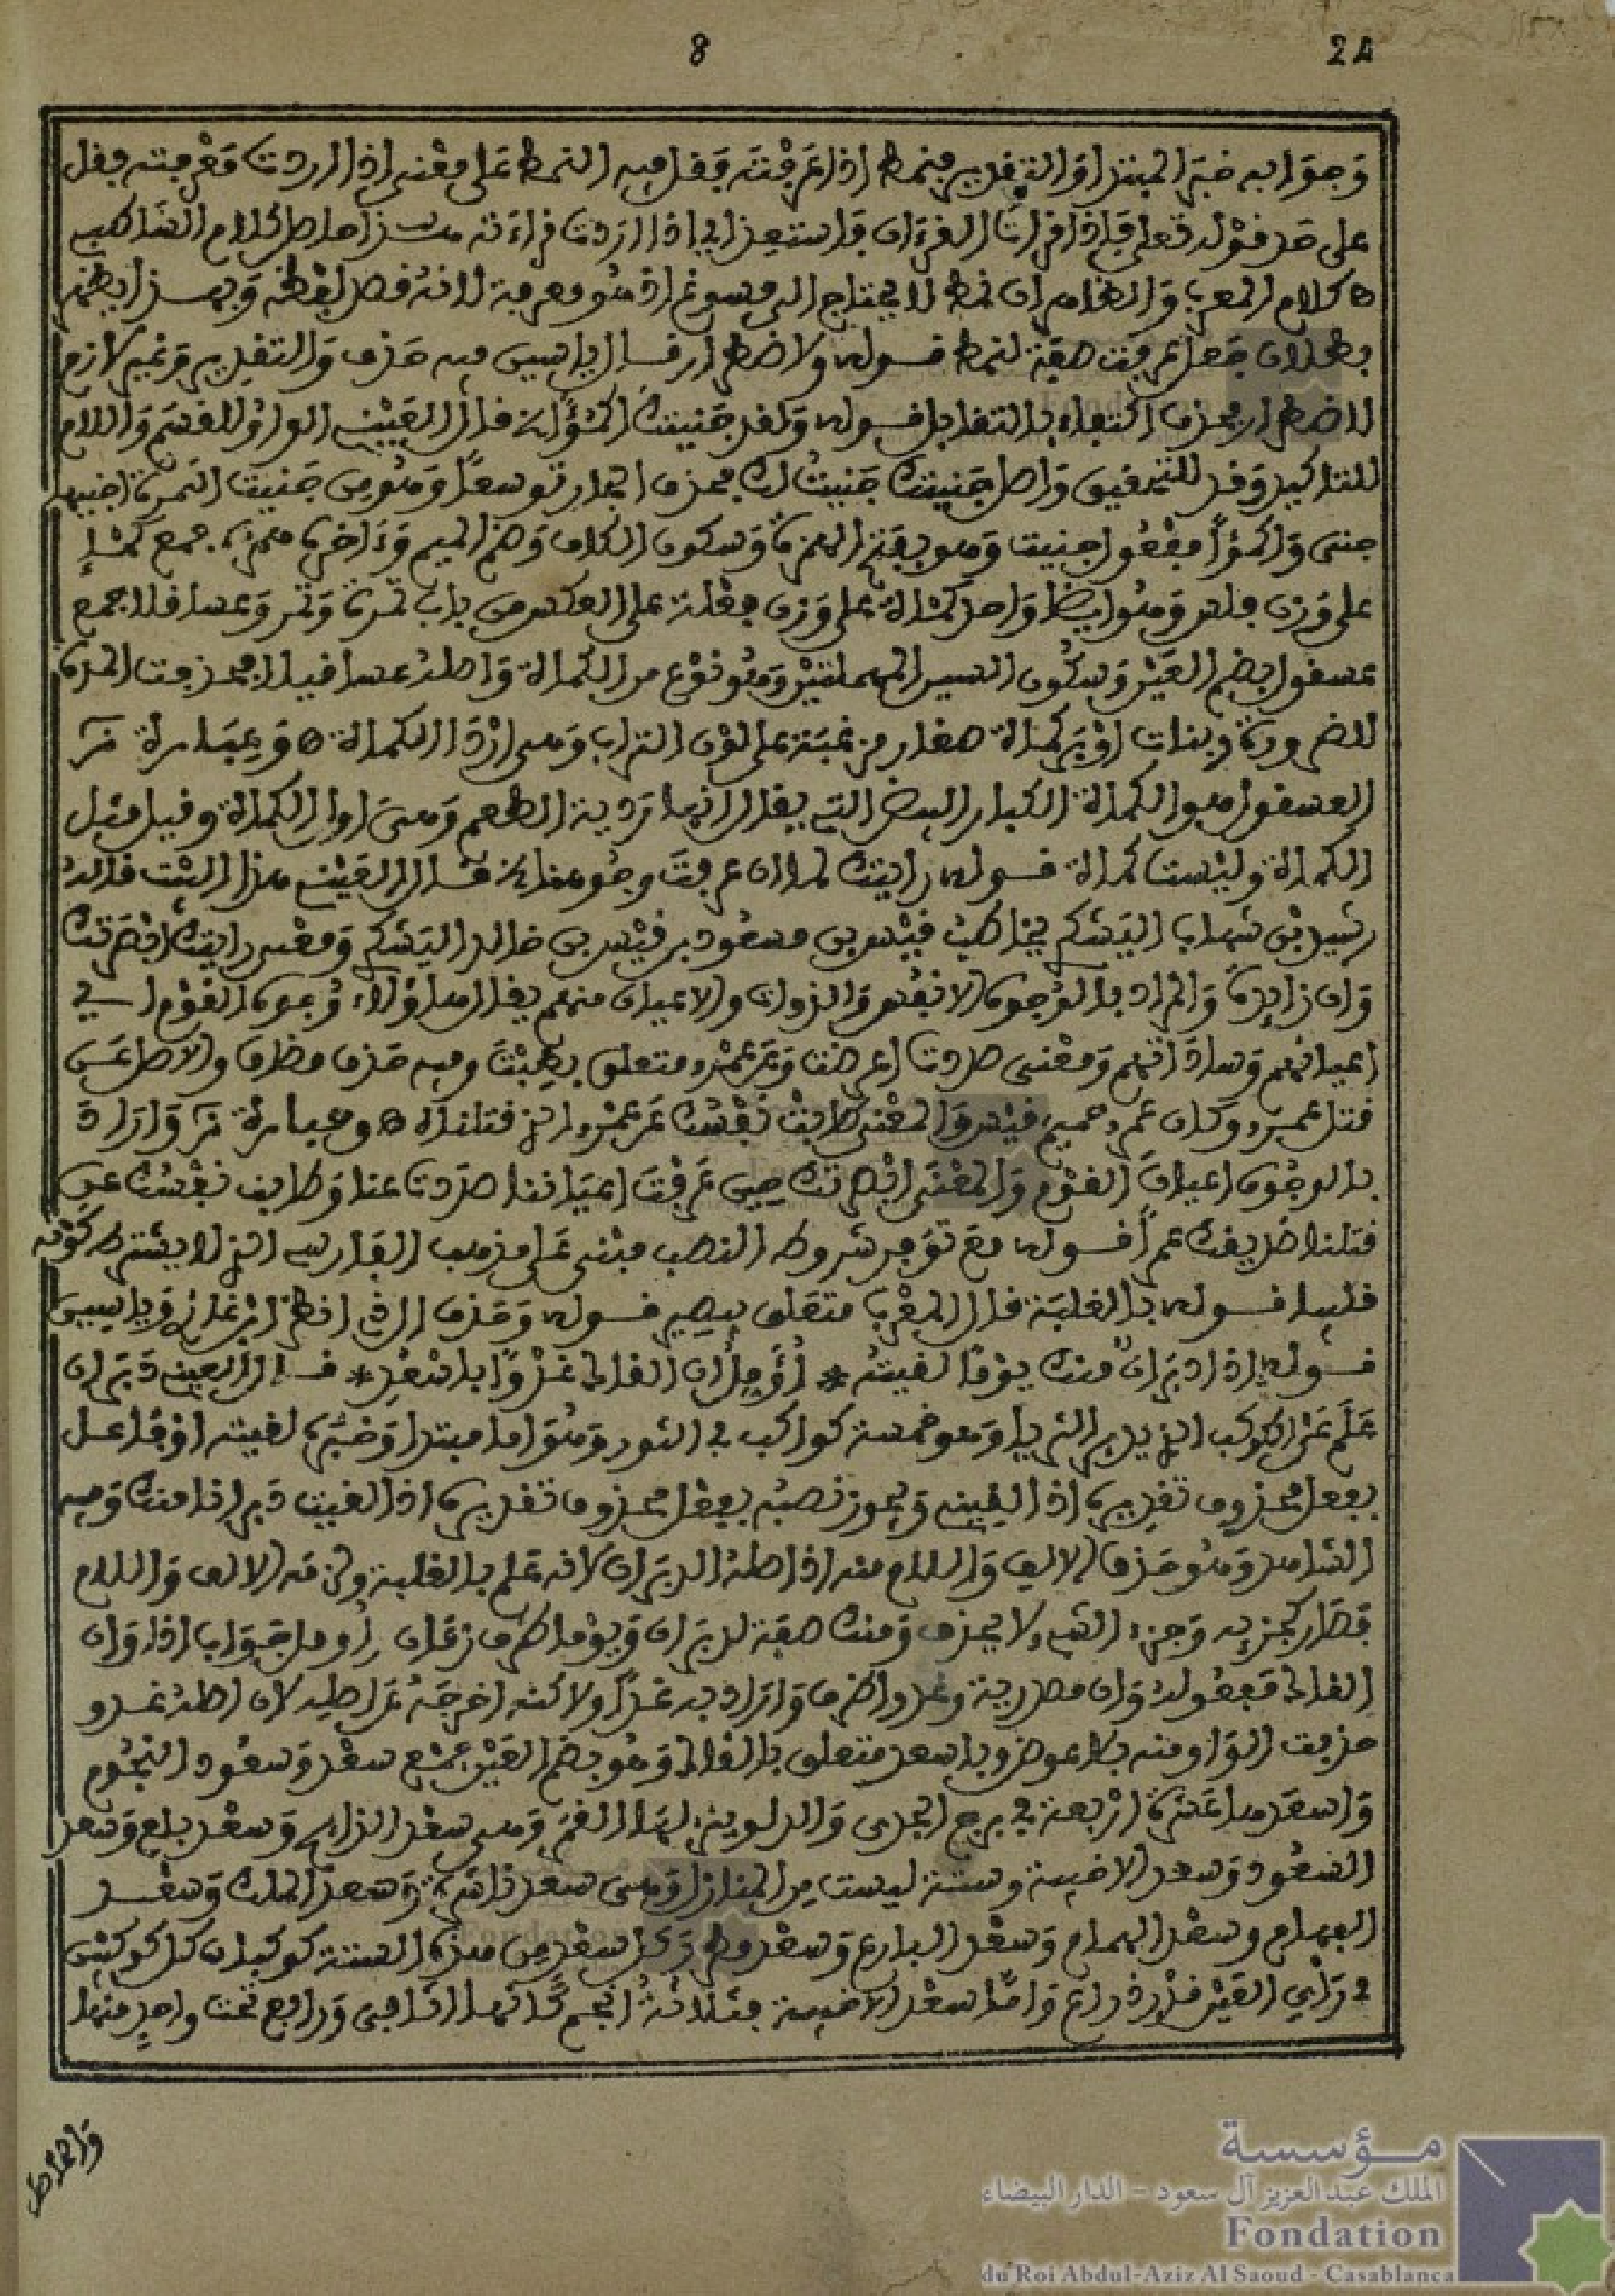 8
24
وجوابه خبر المبتدا والتقدير فنمط اذا عرفته فقل فيه النمط على معنى اذا اردت معرفته فقل
على حد قوله تعلى فاذا قرات القرءان فاستعذ اي اذا اردت قراءته هذا حاصل كلام الشاطبي
ه كلام المعرب والظاهر ان نمط لا يحتاج الى مسوغ اذ هو معرفة لانه قصد لفظه وبهذا يظهر
بطلان جعل عرفت صفة لنمط قوله ولاضطرار قال ياسين فيه حذف والتقدير وغير لازم
لاضطرار فحذف اكتفاء بالتقابل قوله ولقد جنيتك اكمؤا الخ قال العيني الواو للقسم واللام
للتاكيد وقد للتحقيق واصل جنيتك جنيت لك فحذف الجار توسعا وهو من جنيت الثمرة اجنيها
جنى واكمؤا مفعول جنيت وهو بفتح الهمزة وسكون الكاف وضم الميم وءاخره همزة جمع كمء
على وزن فلس وهو ايضا واحد كمأة على وزن فعلة على العكس من باب تمرة وتمر وعساقلا جمع
عسقول بضم العين وسكون السين المهملتين وهو نوع من الكمأة واصله عساقيل فحذفت المدة
للضرورة وبنات اوبر كمأة صغار مزغبة على لون التراب وهي اردأ الكمأة ه وعبارة
العسقول هو الكمأة الكبار البيض التي يقال انها ردية الطعم وهي اول الكمأة وقيل مثل
الكمأة وليست كمأة قوله رايتك لما ان عرفت وجوهنا الخ قال العيني هذا البيت قاله
رشيد بن شهاب اليشكري يخاطب قيس بن مسعود بن قيس بن خالد اليشكري ومعنى رايتك ابصرتك
وان زايدة والمراد بالوجوه الانفس والذوات والاعيان منهم يقال هؤلاء وجوه القوم اي
اعيانهم وساداتهم ومعنى صددت اعرضت وعن عمرو متعلق بطبت وفيه حذف مضاف والاصل عن
قتل عمرو وكان عمرو حميم قيس والمعنى طابت نفسك عن عمرو الذي قتلناه ه وعبارة واراد
بالوجوه اعيان القوم والمعنى ابصرتك حين عرفت اعياننا صددت عنا وطابت نفسك عن
قتلنا صديقك عمرا قوله مع توفر شروط النصب مبني على مذهب الفارسي الذي لا يشترط كونه
قلبيا قوله بالغلبة قال المعرب متعلق بيصير قوله وحذف ال ذي انظر ابن غازي وياسين
قوله اذا دبران منك يوما لقيته * اؤمل ان القاك غدوا باسعد * قال العيني دبران
علم على الكوكب الذي يدبر الثريا وهو خمسة كواكب في الثور وهو اما مبتدا وخبره لقيته او فاعل
بفعل محذوف تقديره اذا لقيته ويجوز نصبه بفعل محذوف تقديره اذا لقيت دبرانا منك وفيه
الشاهد وهو حذف الالف واللام منه اذ اصله الدبران لانه علم بالغلبة ولزمته الالف واللام
فصار كجزءه وجزء الشيء لا يحذف ومنك صفة لدبران ويوما ظرف زمان اؤمل جواب اذا وان
القاك مفعوله وان مصدرية وغدوا ظرف واراد به غدا ولاكنه اخرجه على اصله لان اصله غدو
حذفت الواو منه بلا عوض وباسعد متعلق بالقاك وهو بضم العين جمع سعد وسعود النجوم
واسعدها عشرة اربعة في برج الجدي والدلو ينزلها القمر وهي سعد الذابح وسعد بلع وسعد
السعود وسعد الاخبية وستة ليست من المنازل وهي سعد ناشرة وسعد الملك وسعد
البهام وسعد الهمام وسعد البارع وسعد مطر وكل سعد من هذه الستة كوكبان كل كوكبين
في رأي العين قدر ذراع واما سعد الاخبية فثلاثة انجم كانها اثافي ورابع تحت واحد منها
مؤسسة
الملك عبدالعزيز آل سعود - الدار البيضاء
Fondation
du Roi Abdul-Aziz Al Saoud - Casablanca